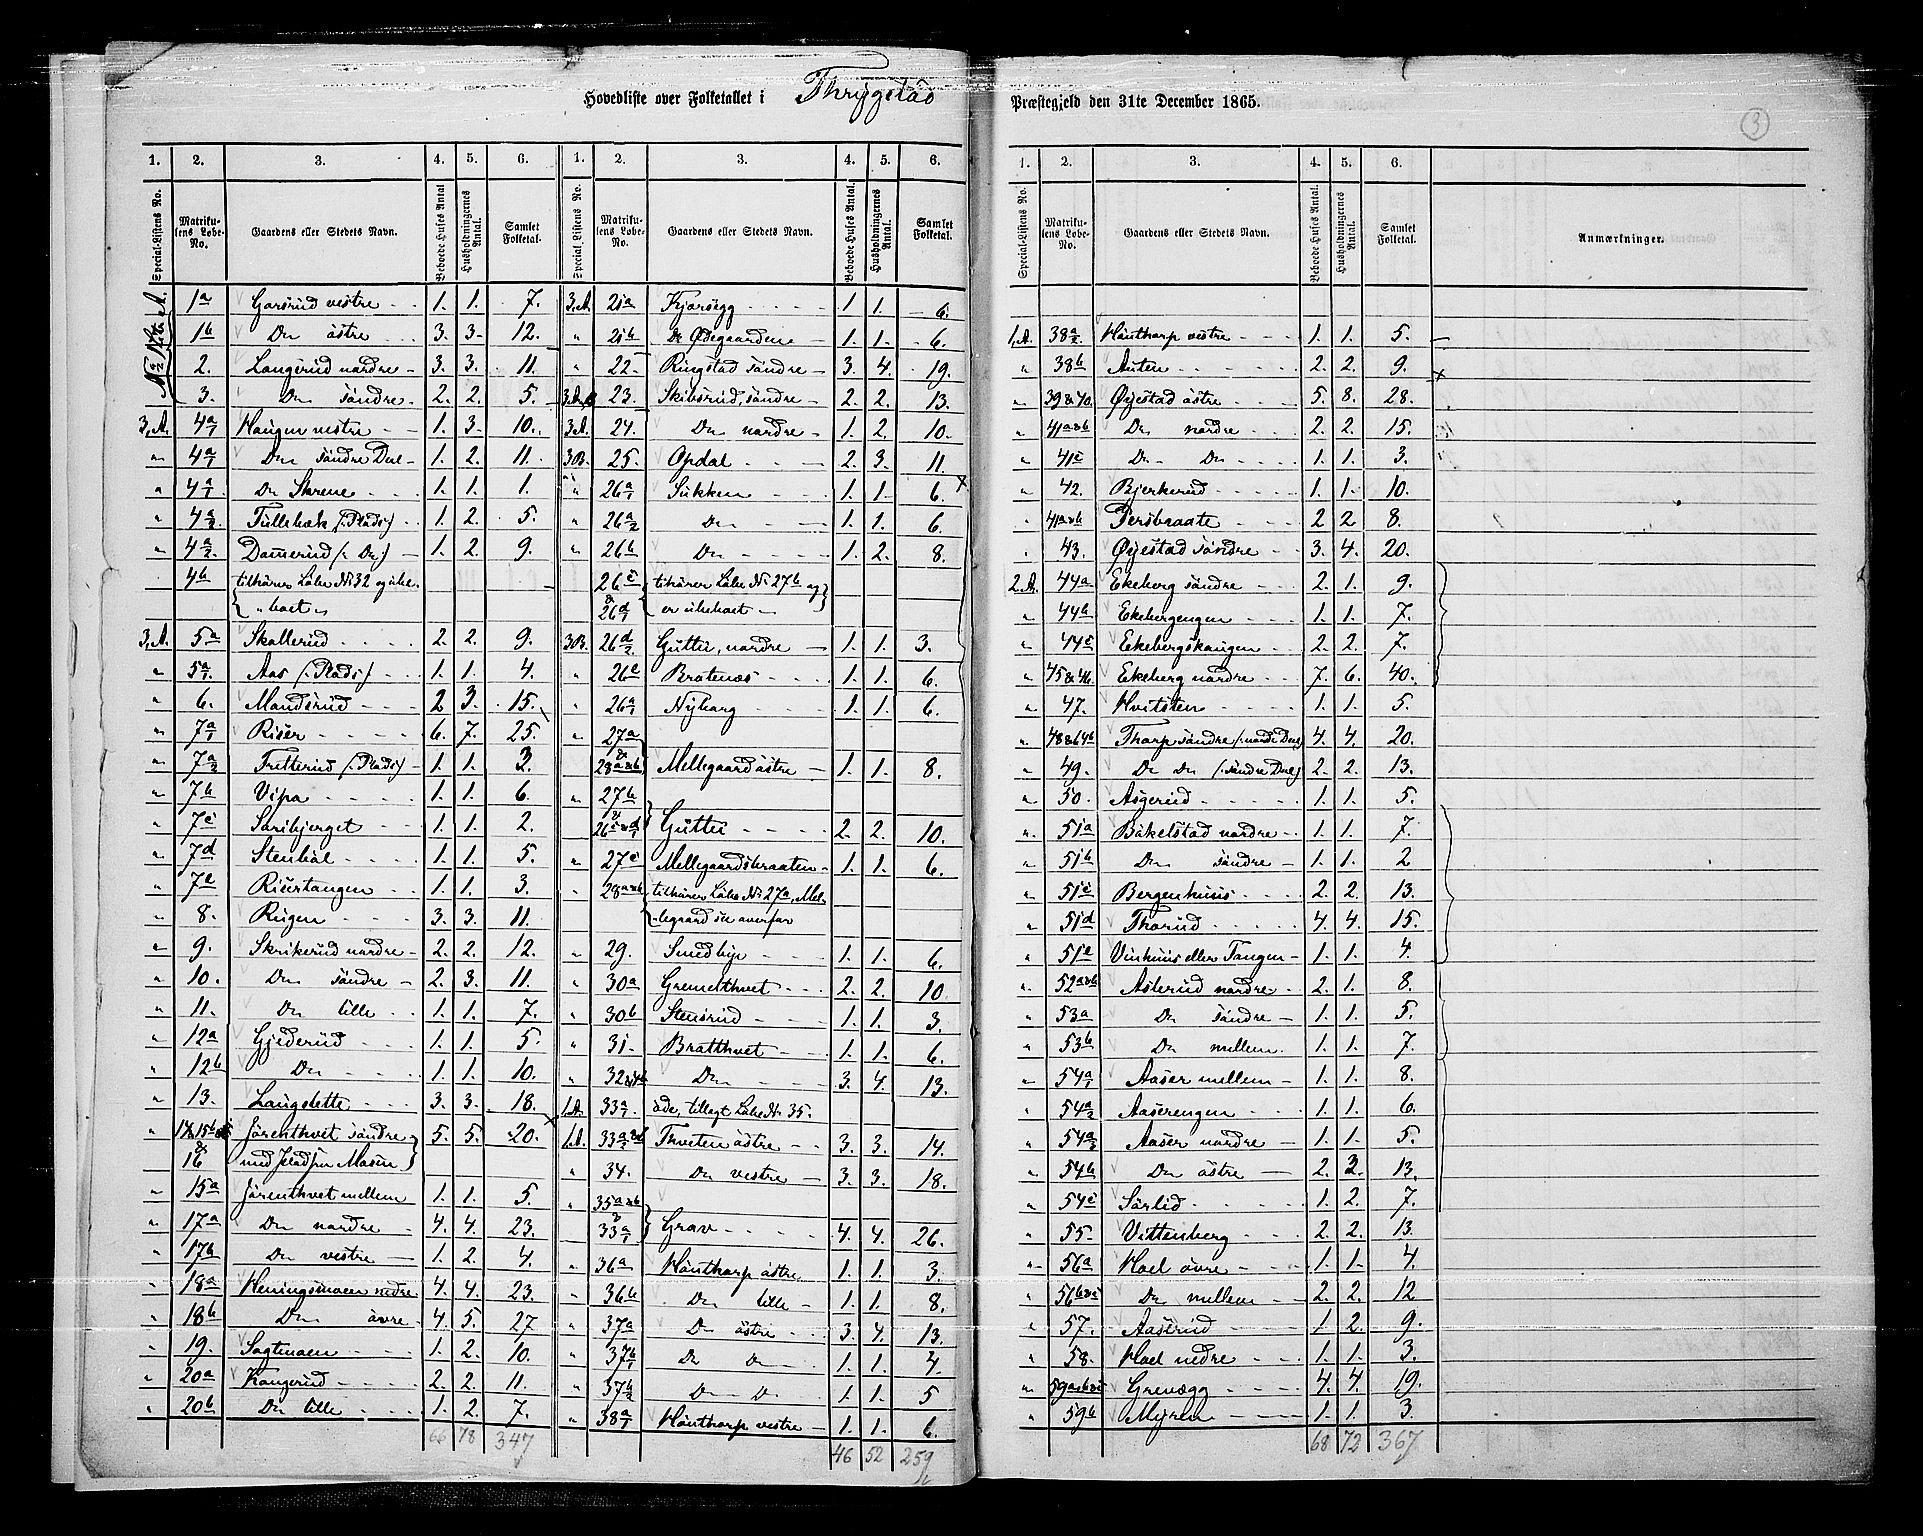 Hovedliste over Folketallet i Thrygstad Præstegjeld den 31te December 1865.
3
1. 2. 3. 4. 5. 6. 1. 2. 3. 4. 5. 6.
Special-Listens No. Matriku-lens Løbe-No. Gaardens eller Stedets Navn. Beboede Huses Antal Husholdningernes Antal. Samlet Folketal. Special Listens No. Matriku-lens Løbe-No. Gaardens eller Stedets Navn. Beboede Huses Antal. Husholdningernes Antal. Samlet Folketal.
1a Garsrud vestre 1. 1. 7.
1b Do östre 3. 3. 12.
2. Langerud nordre 3. 3. 11.
3. Do söndre 2. 2. 5.
3.A. 4a/1 Haugen vestre 1. 3. 10.
" 4a/1 Do söndre Deel 1. 2. 11.
" 4a/1 Do Skrene 1. 1. 1.
" 4a/2 Tullebæk (: Plads:) 1. 2. 5.
" 4a/2 Damerud (: Do:) 1. 2. 9.
4b tilhörer Löbe No 32 og ube-
"boet"
3.A. 5a Skallerud 2. 2. 9.
" 5a/1 Aas (: Plads:) 1. 1. 4.
" 6. Mandsrud 2 3. 15.
" 7a/1 Riser 6. 7. 25.
" 7a/2 Fretterud (: Plads:) 1. 1. 3.
" 7b Vipa 1. 1. 6.
" 7c 1. 1. 2.
" 7d Stenhol 1. 1. 5.
" 7e Risertangen 1. 1. 3.
" 8. Rugen 3. 3. 11.
" 9. Skrikerud nordre 2. 2. 12.
" 10. Do söndre 2. 3. 11.
" 11. Do lille 1. 1. 7.
" 12a Gjederud 1. 1. 5.
" 12b Do 1. 1. 10.
" 13. Langslette 3. 3. 18.
" 14, 15b & 16 Jörenthvet söndre 5. 5. 20.
med Pladsen Mosen
" 15a Jörenthvet mellem 1. 1. 5.
" 17a Do nordre 4. 4. 23.
" 17b Do vestre 1. 2. 4.
" 18a Heningsmoen nedre 4. 4. 23.
" 18b Do övre 4. 5. 27
" 19. Sagtmoen 1. 2. 10.
" 20a Kongerud 2. 2. 11.
" 20b Do lille 1. 2. 7.
66 78 347
3.A. 21a Kjærsegg 1. 1. 6.
" 21b Do Ødegaarden 1. 1. 6.
" 22. Ringstad söndre 3. 4. 19.
23. Skibsrud, söndre 2. 2. 13.
3.A. 24. Do nordre 1. 2. 10.
3.B. 25. Opdal 2. 3. 11.
" 26a/1 Sukken 1. 1. 6.
" 26a/2 Do 1. 1. 6.
" 26b Do 1. 2. 8.
26c & 26d/1 tilhörer Löbe No 27b og
er ubeboet
3.B. 26d/2 Guttu, nordre 1. 1. 3.
" 26e Bratenæs 1. 1. 6.
" 26a/1 Nyborg 1. 1. 6.
27a & 28a&b Mellegaard östre 1. 1. 8.
" 27b & 26c&d/1 Guttu 2. 2. 10.
" 27c Mellegaardsbraaten 1. 1. 6.
" 28a&b tilhörer Löbe No 27a, Mel-
legaard se ovenfor
" 29. Smedbye 1. 1. 6.
" 30a Gremethvet 2. 2. 10
" 30b Stensrud 1. 1. 3.
" 31. Bratthvet 1. 1. 6.
" 32&4b Do 3. 4. 13.
1.A. 33a/1 öde, tillagt Löbe No. 35.
1.A. Tveten östre 3. 3. 14.
" 34. Do vestre 3. 3. 18.
" 35a&b & 33a/1 Grav 4. 4. 26.
" 36a Hönthorp östre 1. 1. 3.
" 36b Do lille 1. 1. 8.
" 37a Do östre 3. 4. 13.
" 37b/1 Do Do 1. 1. 4
" 37b/2 Do Do 1. 1. 5
" 38a/1 Hönthorp vestre 1. 1. 6.
46 52 259
1. 2. 3. 4. 5. 6.
Special-Listens No. Matriku-lens Løbe-No. Gaardens eller Stedets Navn. Beboede Huses Antal. Husholdningernes Antal. Samlet Folketal. Anmærkninger.
1.A. 38a/2 Hönthorp vestre 1. 1. 5.
" 38b Anten 2. 2. 9.
" 39&40. Øyestad östre 5. 8. 28.
" 41a&b Do nordre 2. 2. 15.
" 41c Do Do 1. 1. 3.
" 42. Bjerkerud 1. 1. 10.
" 41a&b Persbraate 2 2 8.
" 43. Øyestad söndre 3. 4. 20.
2.A. 44a Ekeberg söndre 2. 1. 9.
" 44b Ekebergengen 1. 1. 7.
" 44c Eekebergskaugen 2. 2. 7.
" 45&46. Ekeberg nordre 7. 6. 40.
" 47. Hvitsten 1. 1. 5.
" 48&64b Thorp söndre (: nordre Deel) 4. 4. 20.
" 49. Do Do (: söndre Deel) 2. 2. 13.
" 50. Asgerud 1. 1. 5.
" 51a Båkelstad nordre 1. 1. 7.
" 51b Do söndre 1. 1. 2
" 51c Bergenhuus 2. 2. 13.
" 51d Thorud 4. 4. 15.
" 51e Vinhuus eller Tangen 1. 1. 4.
" 52a&b Asterud nordre 2. 1. 8.
" 53a Do söndre 1. 1. 5.
" 53b Do mellem 1. 1. 7.
" 54a/1 Aaser mellem 1. 1. 8.
" 54a/2 Aaserengen 1. 1. 6.
" 54a/3 Aaser nordre 1. 1. 5.
" 54b Do östre 2. 2. 13.
" 54c Sörlid 1. 2. 7.
" 55. Vittenberg 2. 2. 13.
" 56a Hoel övre 1. 1. 4.
" 56b&c Do mellem 2. 2. 12
" 57. Aaserud 1. 2. 9.
" 58. Hoel nedre 1. 1. 3.
" 59a&c Grenægg 4. 4. 19.
" 59b Myren 1. 1. 3.
68 72 367